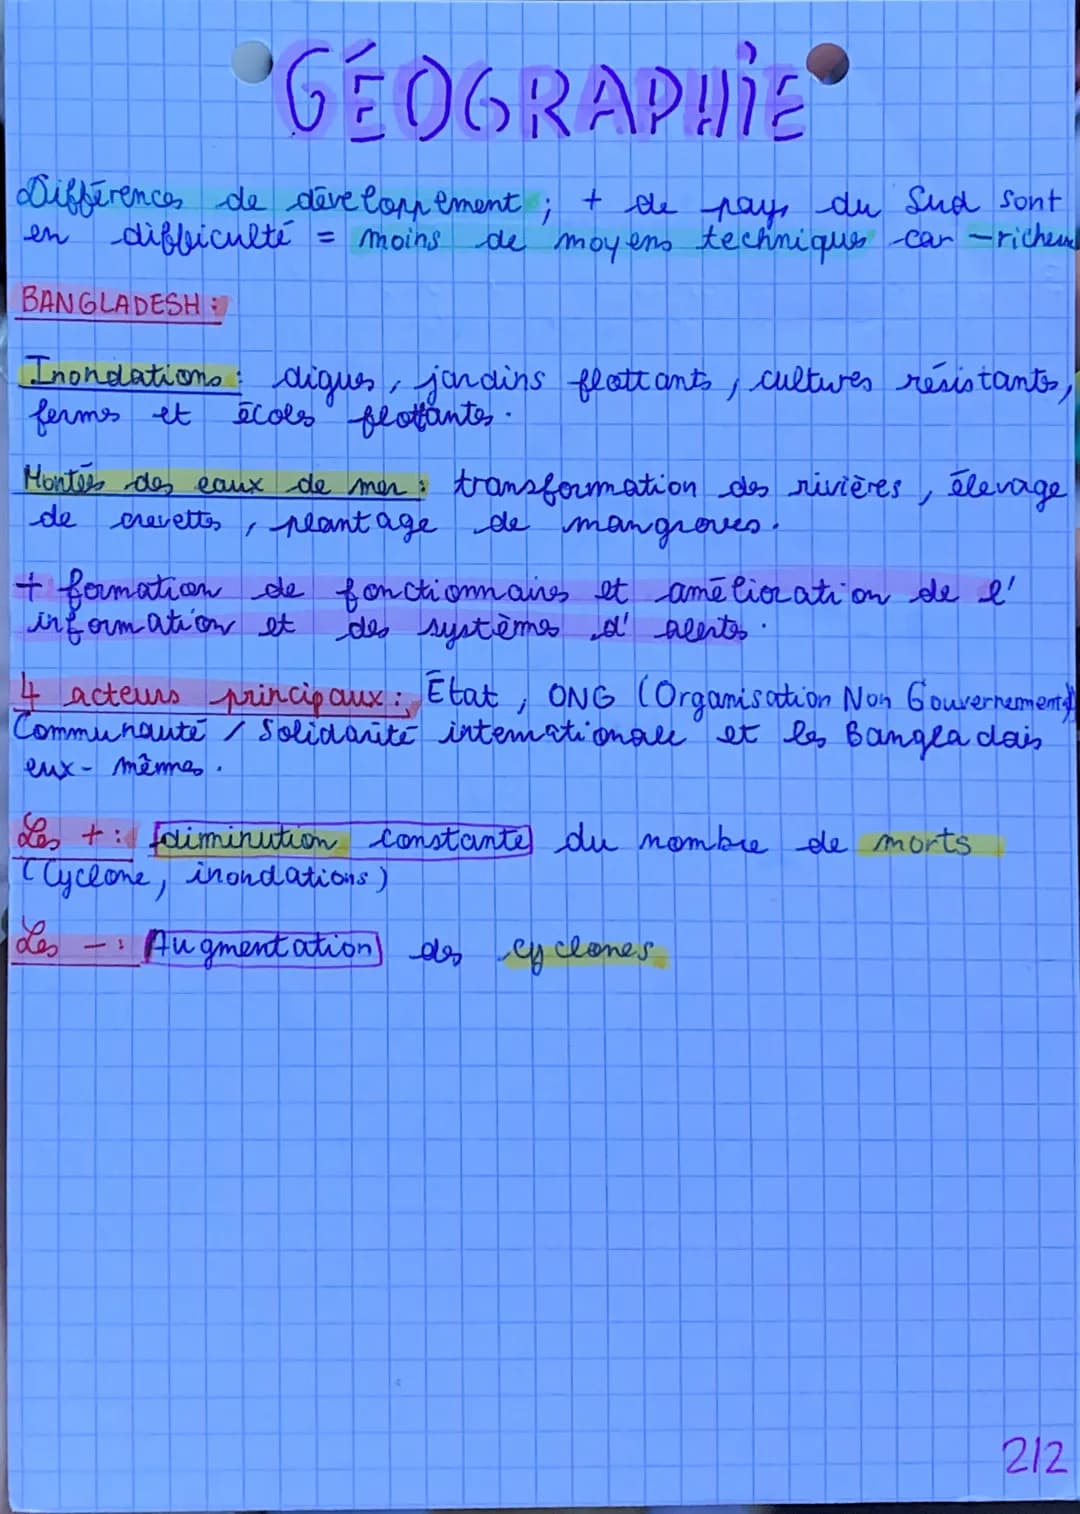 GÉOGRAPHIE
Différences de développement ; + de pays du Sud sont
en difficulté = moins de moyens techniques car - richeux
BANGLADESH :
Inondations : digues, jardins flottants, cultures résistants,
fermes et écoles flottantes.
Montées des eaux de mer : transformation des rivières, élevage
de crevettes, plantage de mangroves.
+ formation de fonctionnaires et amélioration de l'
information et des systèmes d'alertes.
4 acteurs principaux : État, ONG (Organisation Non Gouvernemental)
Communauté / Solidarité internationale et les Bangladais
eux-mêmes.
Les + : diminution constante du nombre de morts
(Cyclone, inondations)
Les - : Augmentation des cyclones
2/2